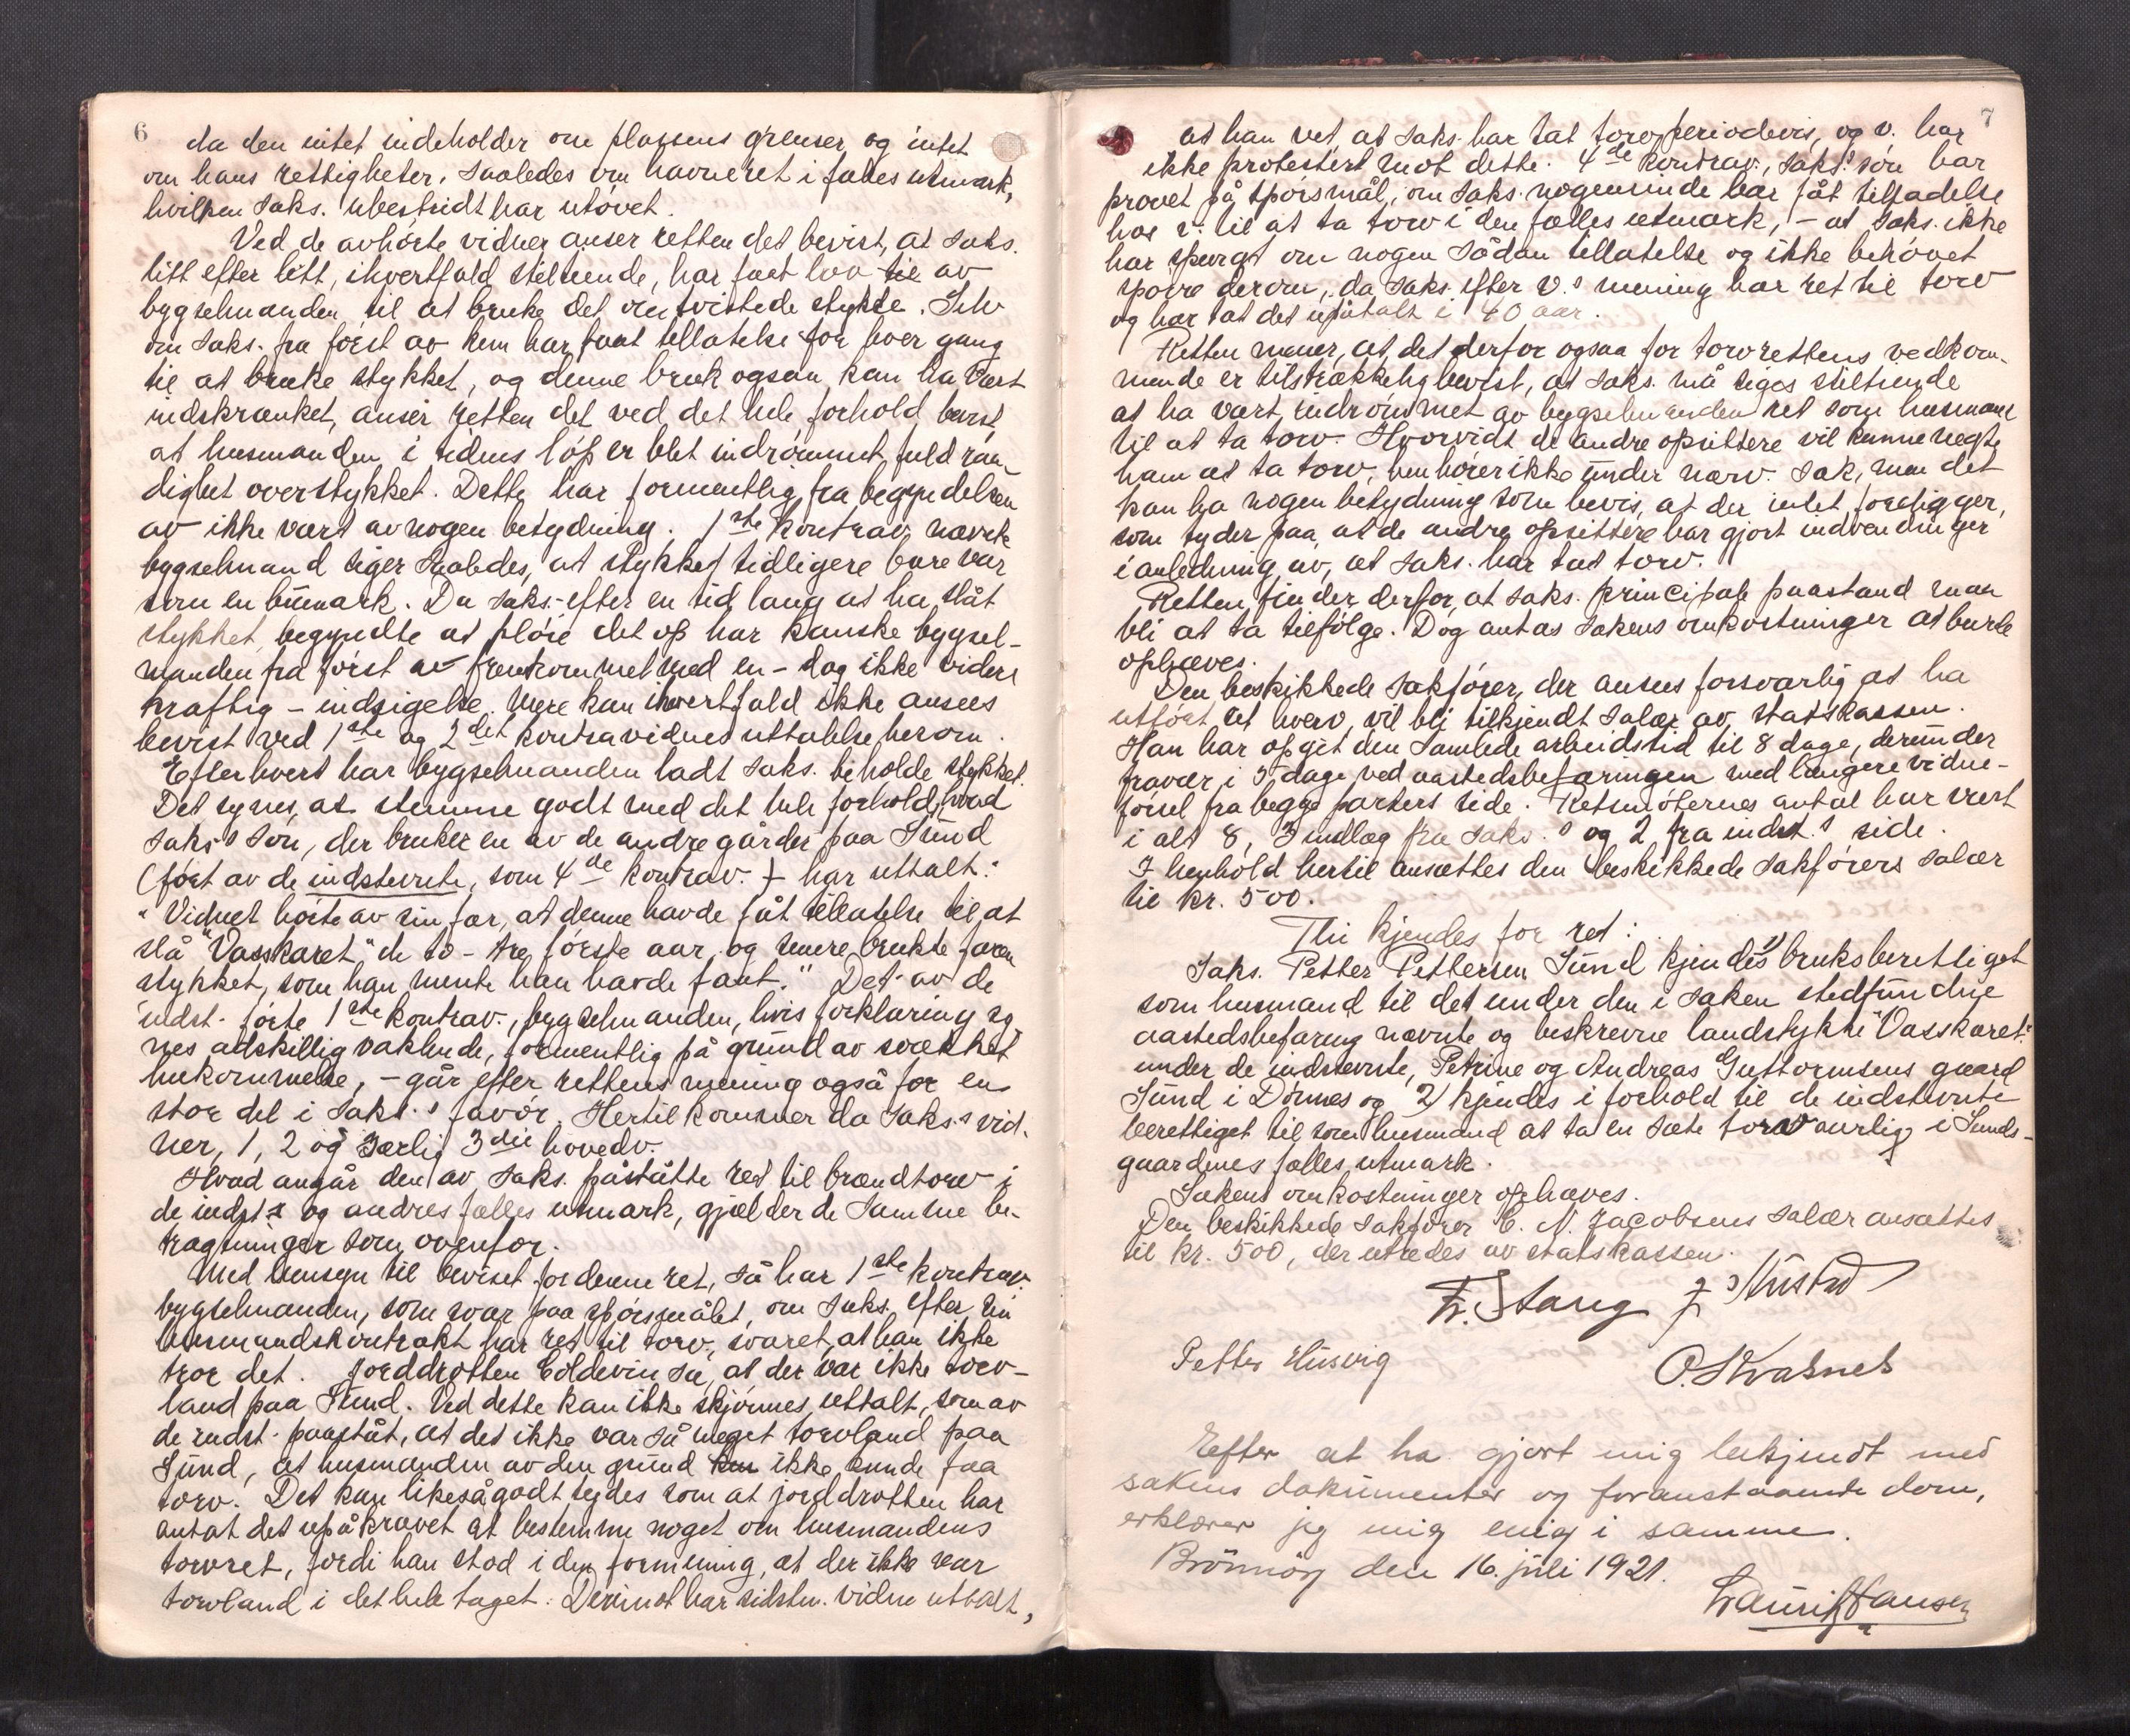 6
da den intet indeholder om plassens grenser og intet
om hans rettigheter, saaledes om havneret i fælles utmark,
hvilken saks. ubestridt har utøvet.
Ved de avhørte vidner anser retten det bevist, at saks.
litt efter litt, ihvertfald stiltiende, har faat lov til av
bygselmanden til at bruke det omtvistede stykke. Selv
om saks. fra først av kun har faat tillatelse for hver gang
til at bruke stykket, og denne bruk ogsaa kan ha vært
indskrænket, anser retten det ved det hele forhold bevist,
at husmanden i tidens løp er blet indrømmet fuld raa-
dighet over stykket. Dette har formentlig fra begyndelsen
av ikke vært av nogen betydning. 1ste kontrav. nævnte
bygselmand siger saaledes, at stykket tidligere bare var
som en bumark. Da saks. efter en tid lang at ha slåt
stykket, begyndte at pløie det op har kanske bygsel-
manden fra først av fremkommet med en - dog ikke videre
kraftig - indsigelse. Mere kan ihvertfald ikke ansees
bevist ved 1ste og 2det kontravidnes uttalelse herom.
Efterhvert har bygselmanden ladt saks. beholde stykket.
Det synes, at stemme godt med det hele forhold, hvad
saks's søn, der bruker en av de andre gårder paa Sund
(ført av de indstevnte, som 4de kontrav.) - har uttalt:
"Vidnet hørte av sin far, at denne havde fåt tillatelse til at
slå "Vasskaret" de to - tre første aar, og senere brukte faren
stykket, som han mente han havde faat." Det av de
indst. førte 1ste kontrav., bygselmanden, hvis forklaring sy-
nes adskillig vaklende, formentlig på grund av svækket
hukommelse, - går efter rettens mening også for en
stor del i saks.'s favør. Hertil kommer da saks.s vid-
ner, 1, 2 og særlig 3die hovedv.
Hvad angår den av saks. påståtte ret til brændtorv i
de indst.s og andres fælles utmark, gjælder de samme be-
tragtninger som ovenfor.
Med hensyn til beviset for denne ret, så har 1ste kontrav.
bygselmanden, som svar paa spørsmålet, om saks. efter sin
husmandskontrakt har ret til torv, svaret, at han ikke
tror det. Jorddrotten Coldevin sa, at der var ikke torv-
land paa Sund. Ved dette kan ikke skjønnes uttalt, som av
de indst. paaståt, at det ikke var så meget torvland paa
Sund, at husmanden av den grund ikke kunde faa
torv. Det kan likesågodt tydes som at jorddrotten har
antat det upåkrævet at bestemme noget om husmandens
torvret, fordi han stod i den formening, at der ikke var
torvland i det hele taget. Derimot har sidstn. vidne uttalt,
7
at han vet, at saks. har tat torv periodevis, og v. har
ikke protestert mot dette. 4de kontrav., saks.'s søn har
prøvet på spørsmål, om saks. nogensinde har fåt tilladelse
hos v. til at ta torv i den fælles utmark, - at saks. ikke
har spurgt om nogen sådan tillatelse og ikke behøvet
spørre derom, da saks. efter v.s mening har ret til torv
og har tat det upåtalt i 40 aar.
Retten mener, at det derfor ogsaa for torvrettens vedkom-
mende er tilstrækkelig bevist, at saks. må siges stiltiende
at ha vært indrømmet av bygselmanden ret som husmand
til at ta torv. Hvorvidt de andre opsittere vil kunne negte
ham at ta torv, henhører ikke under nærv. sak, men det
kan ha nogen betydning som bevis, at der intet foreligger,
som tyder paa at de andre opsittere har gjort indvendinger
i anledning av, at saks. har tat torv.
Retten finder derfor, at saks. principale paastand maa
bli at ta tilfølge. Dog antas sakens omkostninger at burde
ophæves.
Den beskikkede sakfører, der ansees forsvarlig at ha
utført sit hverv, vil bli tilkjendt salær av statskassen.
Han har opgit den samlede arbeidstid til 8 dage, derunder
fravær i 3 dage ved aastedsbefaringen med længere vidne-
førsel fra begge parters side. Retsmøternes antal har vært
i alt 8, 3 indlæg fra saks.'s og 2 fra indst.'s side.
I henhold hertil ansættes den beskikkede sakførers salær
til kr. 500.
Thi kjendes for ret:
Saks. Petter Pettersen Sund kjendes 1) bruksberettiget
som husmand til det under den i saken stedfundne
aastedsbefaring nævnte og beskrevne landstykke "Vasskaret"
under de indstevnte, Petrine og Andreas Guttormsens gaard
Sund i Dønnes og 2) kjendes i forhold til de indstevnte
berettiget til som husmand at ta en sæte torv aarlig i Sunds-
gaardenes fælles utmark.
Sakens omkostninger ophæves.
Den beskikkede sakfører C. N. Jacobsens salær ansættes
til kr. 500, der utredes av statskassen.
Fr. Stang J. Mustad
Petter Husvig
O. Strasnes
Efter at ha gjort mig bekjendt med
sakens dokumenter og foranstaaende dom,
erklærer jeg mig enig i samme.
Brönnöy den 16. juli 1921.
Lauritz Hansen